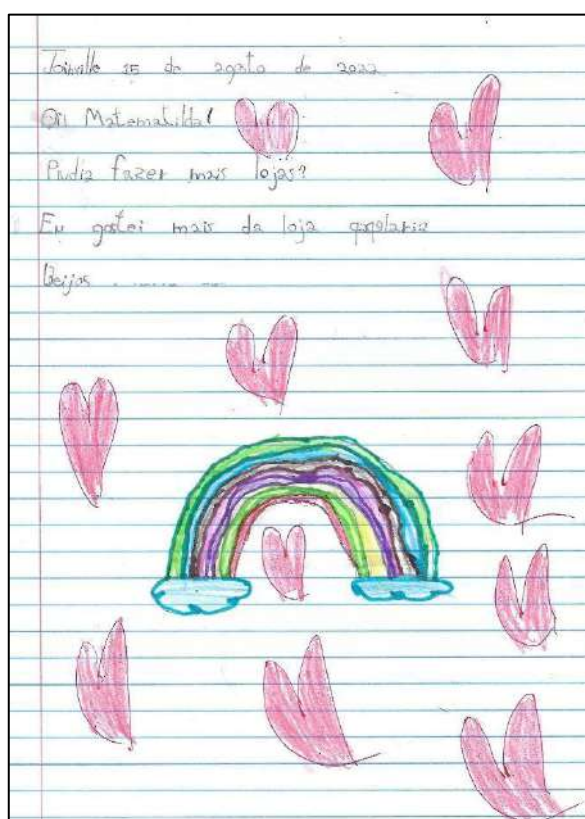 Joinville 15 de agosto de 2022
Oii Matematilda!
Pudia fazer mais lojas?
Eu gostei mais da loja papelaria
Beijos